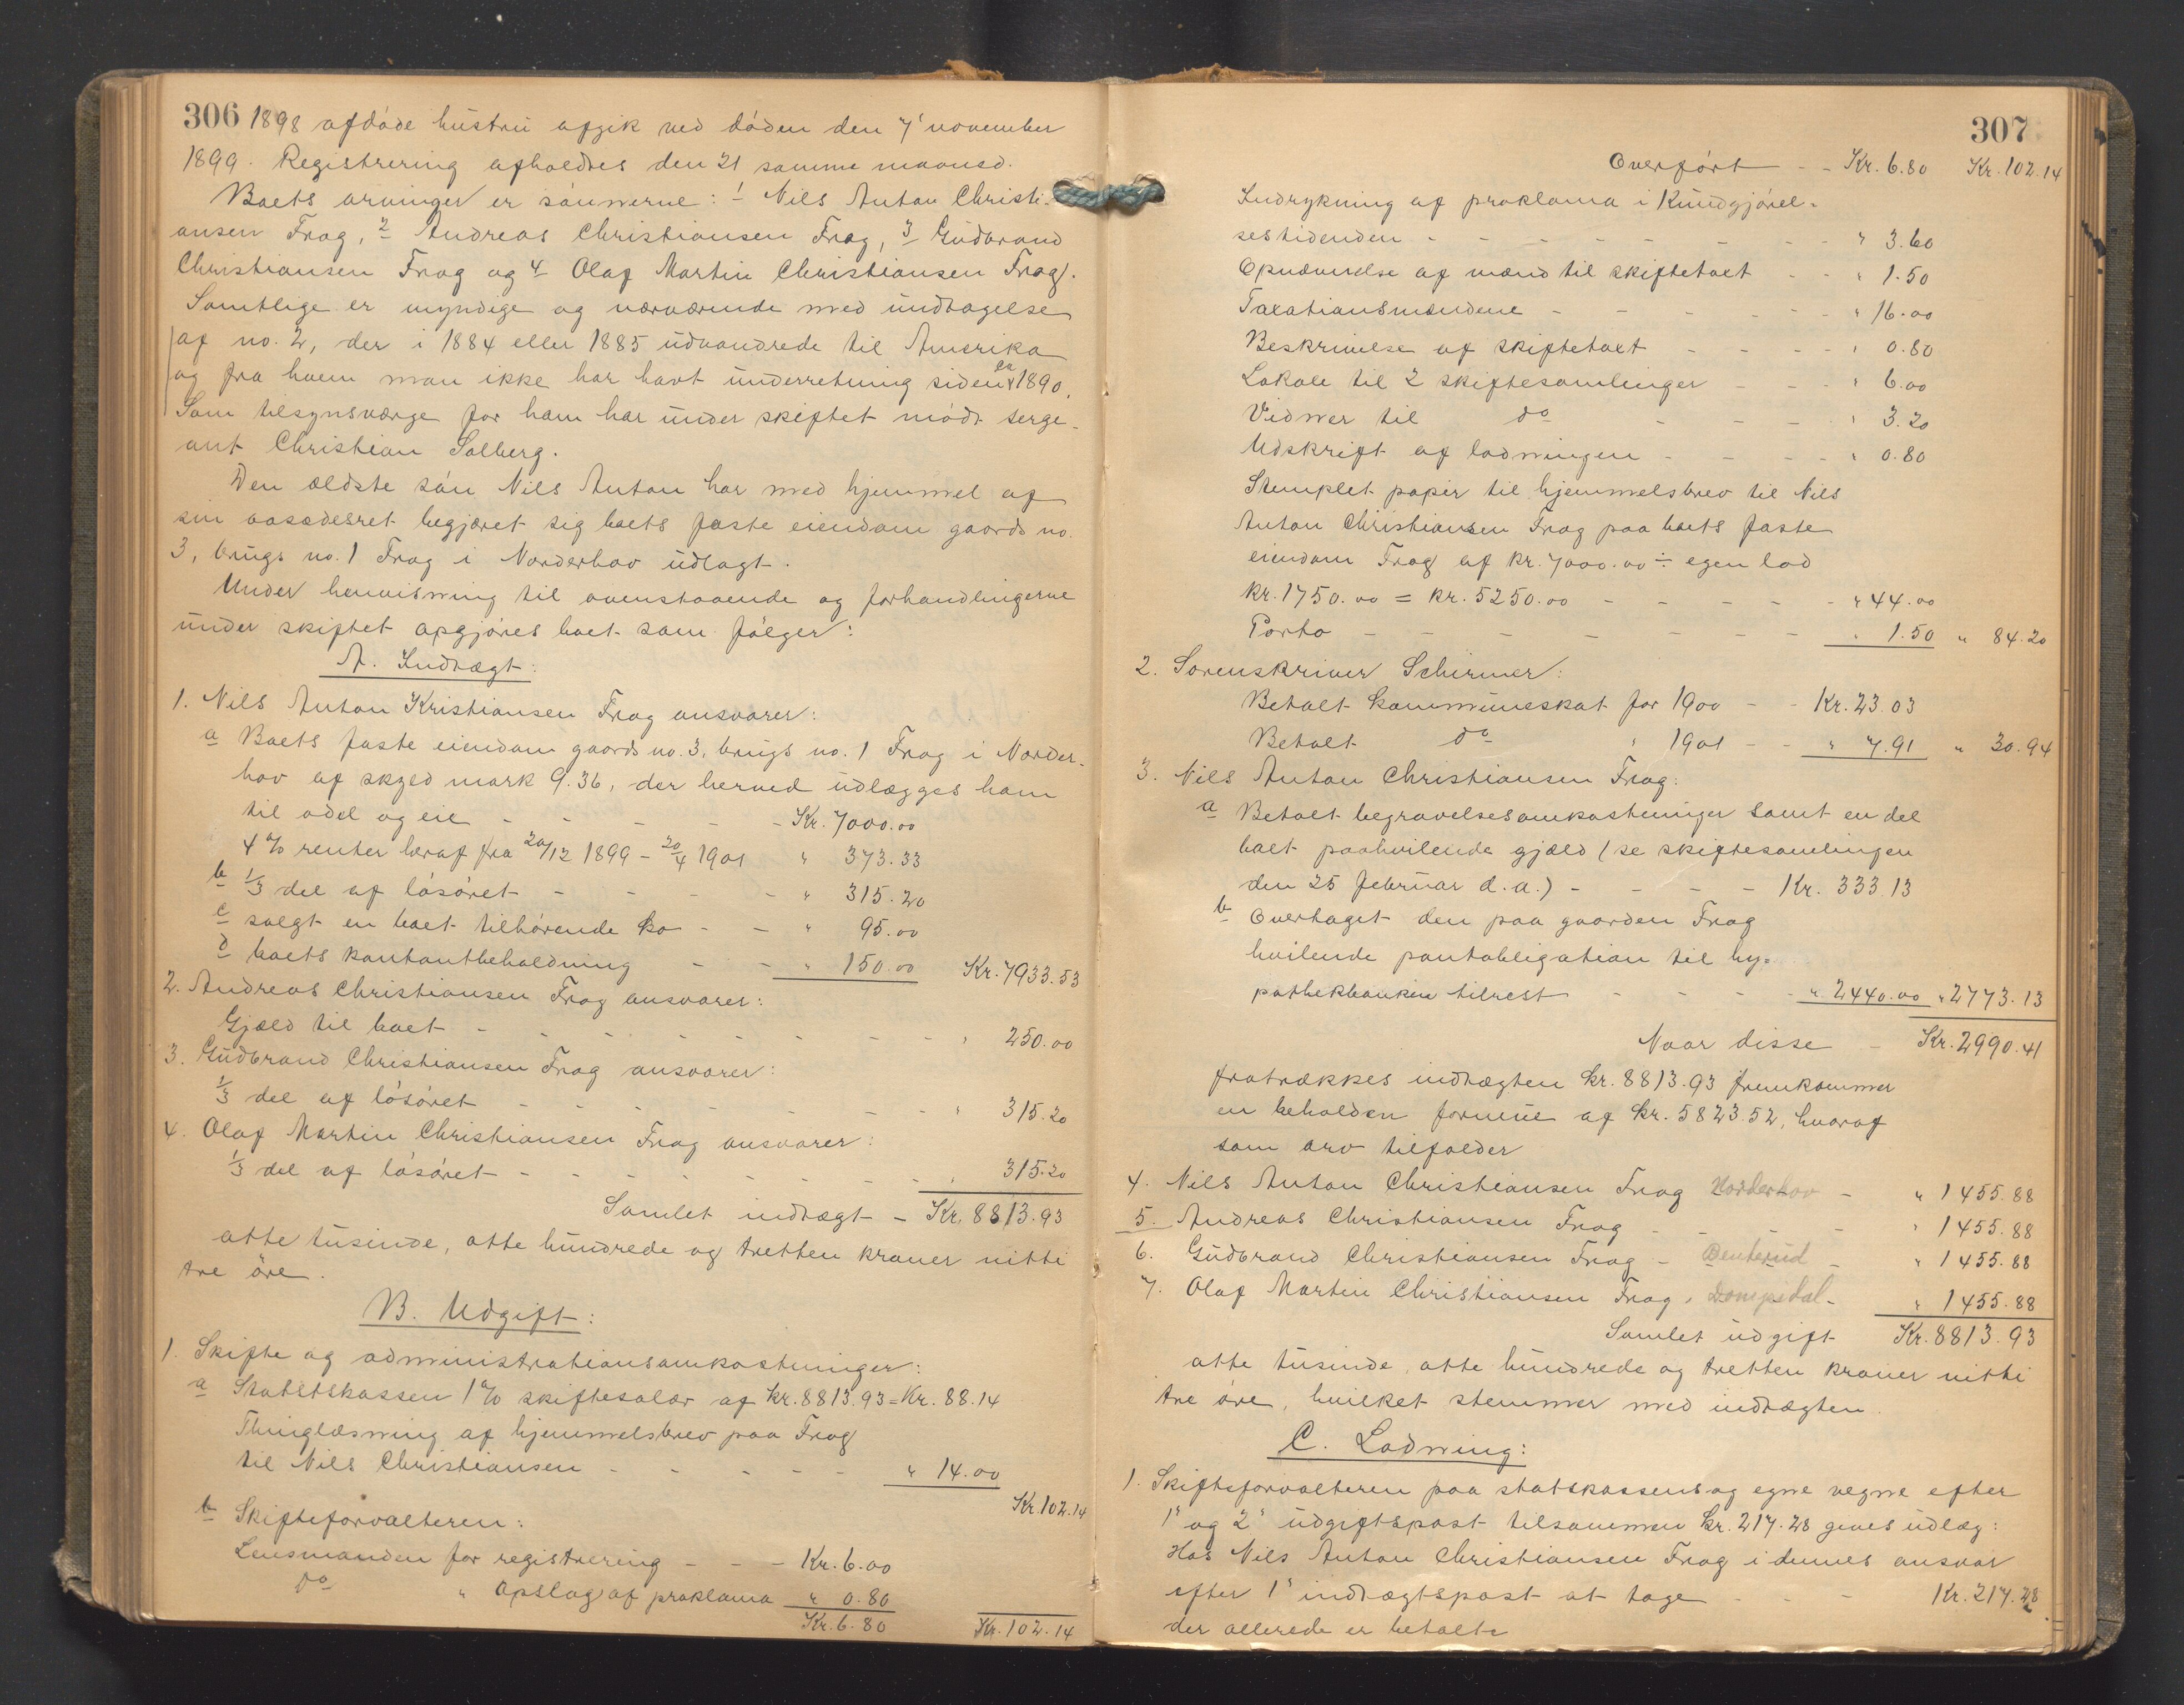 306 1898 afdøde hustru afgik ved døden den 7' november
1899. Registrering afholdtes den 21 samme maaned.
Boets arvinger er sønnerne: 1 Nils Anton Christi-
ansen Frog, 2 Andreas Christiansen Frog, 3 Gudbrand
Christiansen Frog og 4 Olaf Martin Christiansen Frog.
Samtlige er myndige og nærværende med undtagelse
af no. 2, der i 1884 eller 1885 udvandrede til Amerika
og fra hvem man ikke har havt underretning siden ca 1890.
Som tilsynsværge for ham har under skiftet mødt serge-
ant Christian Solberg.
Den ældste søn Nils Anton har med hjemmel af
sin aasædesret begjæret sig boets faste eiendom gaards no.
3, brugs no. 1 Frog i Norderhov udlagt.
Under henvisning til ovenstaaende og forhandlingerne
under skiftet opgjøres boet som følger:
A. Indtægt:
1. Nils Anton Kristiansen Frog ansvarer:
a Boets faste eiendom gaards no. 3, brugs no. 1 Frog i Norder-
hov af skyld mark 9.36, der herved udlægges ham
til odel og eie - - - - Kr. 7000.00
4% renter heraf fra 20/12 1899 - 20/4 1901 " 373.33
b 1/3 del af løsøret - - - - " 315.20
c solgt en boet tilhørende ko - - " 95.00
d boets kontantbeholdning - - " 150.00 Kr. 7933.53
2. Andreas Christiansen Frog ansvarer:
Gjæld til boet - - - - - - - " 250.00
3. Gudbrand Christiansen Frog ansvarer:
1/3 del af løsøret - - - - - - - " 315.20
4. Olaf Martin Christiansen Frog ansvarer:
1/3 del af løsøret - - - - - - - " 315.20
Samlet indtægt - Kr. 8813.93
otte tusinde, otte hundrede og tretten kroner nitti
tre øre.
B. Udgift:
1. Skifte og administrationsomkostninger:
a Statskassen 1% skiftesalær af kr. 8813.93 = Kr. 88.14
Thinglæsning af hjemmelsbrev paa Frog
til Nils Christiansen - - - - - " 14.00
Kr. 102.14
b Skifteforvalteren:
Lensmanden for registrering - - - Kr. 6.00
do " Opslag af proklama " 0.80
Kr. 6.80 Kr. 102.14
307
Overført - - Kr. 6.80 Kr. 102.14
Indrykning af proklama i Kundgjørel-
sestidenden - - - - - - - " 3.60
Opnævnelse af mænd til skiftetaxt - - " 1.50
Taxationsmændene - - - - - " 16.00
Beskrivelse af skiftetaxt - - - - " 0.80
Lokale til 2 skiftesamlinger - - - " 6.00
Vidner til do - - - " 3.20
Udskrift af lodningen - - - - " 0.80
Stemplet papir til hjemmelsbrev til Nils
Anton Christiansen Frog paa boets faste
eiendom Frog af kr. 7000.00 ÷ egen lod
kr. 1750.00 = kr. 5250.00 - - - - - " 44.00
Porto - - - - - - - " 1.50 " 84.20
2. Sorenskriver Schirmer:
Betalt kommuneskat for 1900 - - Kr. 23.03
Betalt do " 1901 - - " 7.91 " 30.94
3. Nils Anton Christiansen Frog:
a Betalt begravelsesomkostninger samt en del
boet paahvilende gjæld (se skiftesamlingen
den 25 februar d.a.) - - - - Kr. 333.13
b Overtaget den paa gaarden Frog
hvilende pantobligation til hy-
pothekbanken tilrest - - - - " 2440.00 " 2773.13
Naar disse - Kr. 2990.41
fratrækkes indtægten kr. 8813.93 fremkommer
en beholden formue af kr. 5823.52, hvoraf
som arv tilfalder
4. Nils Anton Christiansen Frog Norderhov - " 1455.88
5. Andreas Christiansen Frog - - - - " 1455.88
6. Gudbrand Christiansen Frog - Benterud - " 1455.88
7. Olaf Martin Christiansen Frog, Dompidal - " 1455.88
Samlet udgift Kr. 8813.93
otte tusinde, otte hundrede og tretten kroner nitti
tre øre, hvilket stemmer med indtægten.
C. Lodning:
1. Skifteforvalteren paa statskassens og egne vegne efter
1" og 2" udgiftspost tilsammen kr. 217.28 gives udlæg:
Hos Nils Anton Christiansen Frog i dennes ansvar
efter 1" indtægtspost at tage - - - Kr. 217.28
der allerede er betalte